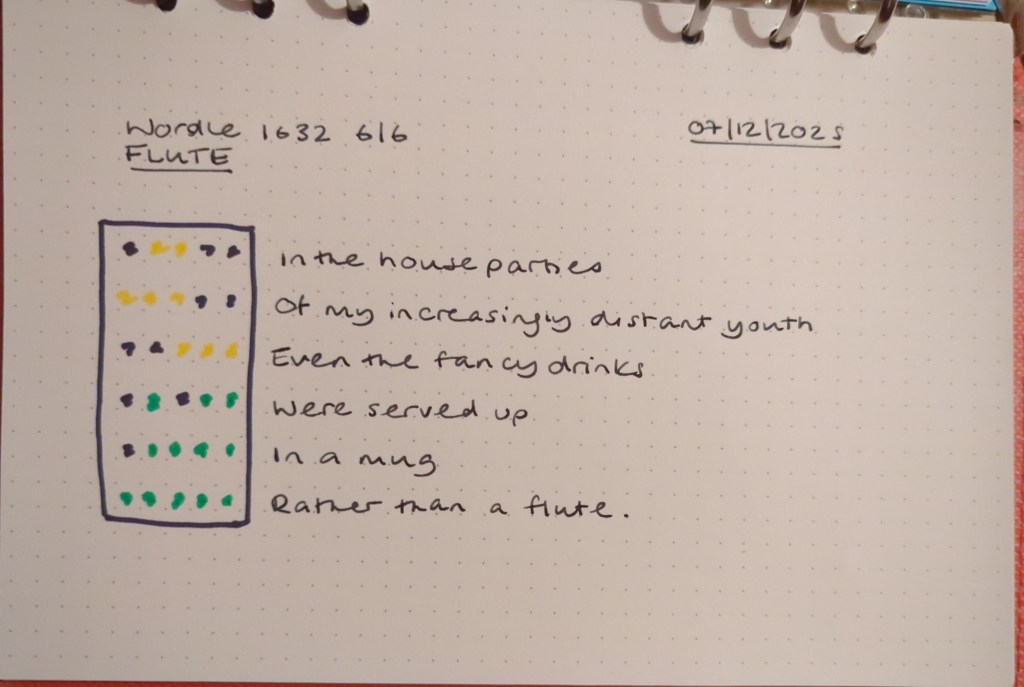 Wordle 1632 6/6
07/12/2025
FLUTE
In the house parties
Of my increasingly distant youth
Even the fancy drinks
Were served up
In a mug
Rather than a flute.